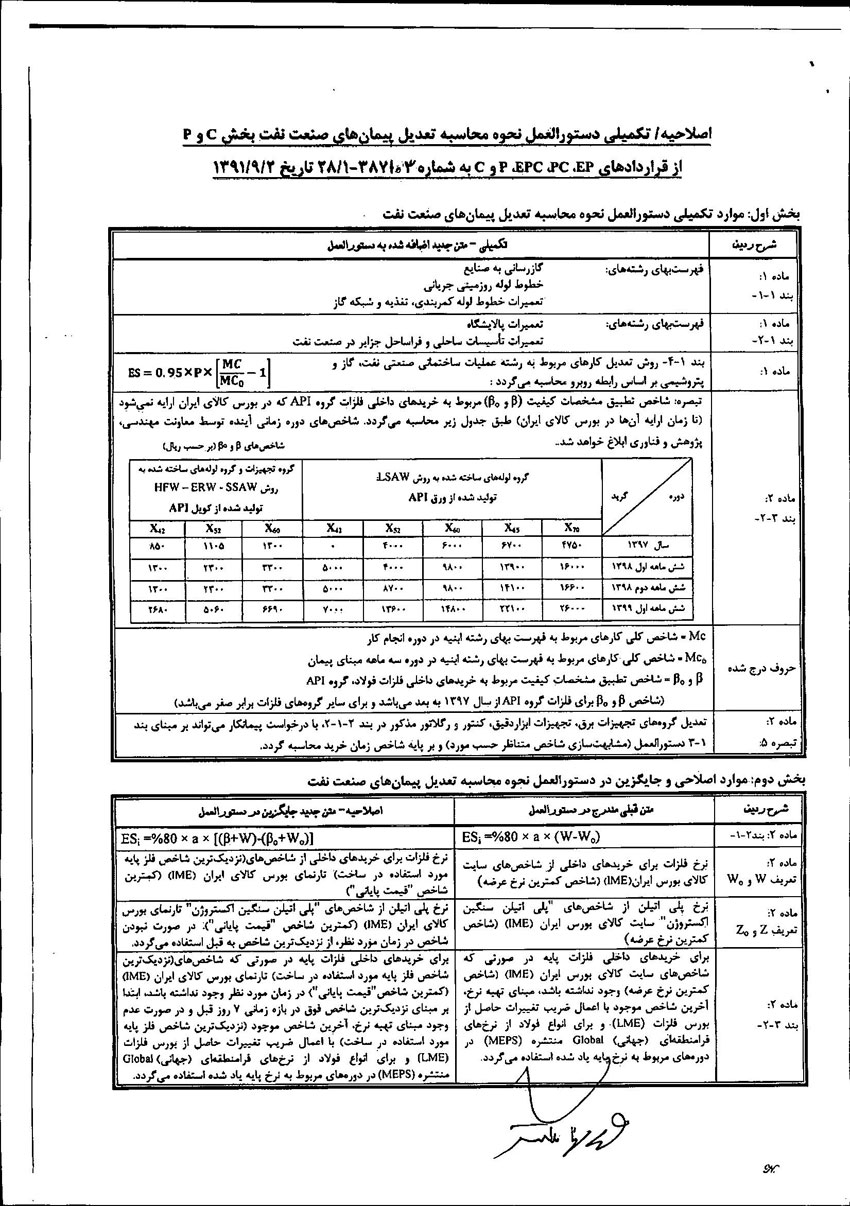 اصلاحیه/ تکمیلی دستورالعمل نحوه محاسبه تعدیل پیمان‌های صنعت نفت بخش C و P
از قراردادهای P ،EPC ،PC ،EP و C به شماره ۲۸/۱-۳۸۷۱۰۳ تاریخ ۱۳۹۱/۹/۲
بخش اول: موارد تکمیلی دستورالعمل نحوه محاسبه تعدیل پیمان‌های صنعت نفت
شرح ردیف
تکمیلی – متن جدید اضافه شده به دستورالعمل
ماده ۱:
بند ۱-۱-
فهرست‌بهای رشته‌های: گازرسانی به صنایع
خطوط لوله روزمینی جریانی
تعمیرات خطوط لوله کمربندی، تغذیه و شبکه گاز
ماده ۱:
بند ۱-۲-
فهرست‌بهای رشته‌های: تعمیرات پالایشگاه
تعمیرات تأسیسات ساحلی و فراساحل جزایر در صنعت نفت
ماده ۱:
بند ۱-۴- روش تعدیل کارهای مربوط به رشته عملیات ساختمانی صنعتی نفت، گاز و
پتروشیمی بر اساس رابطه روبرو محاسبه می‌گردد :
ES = 0.95×P×[MC/MC₀ − 1]
ماده ۲:
بند ۲-۳-
تبصره: شاخص تطبیق مشخصات کیفیت (β و β₀) مربوط به خریدهای داخلی فلزات گروه API که در بورس کالای ایران ارایه نمی‌شود
(تا زمان ارایه آن‌ها در بورس کالای ایران) طبق جدول زیر محاسبه می‌گردد. شاخص‌های دوره زمانی آینده توسط معاونت مهندسی،
پژوهش و فناوری ابلاغ خواهد شد..
شاخص‌های β و β₀ (بر حسب ریال)
دوره
گرید
گروه لوله‌های ساخته شده به روش LSAW،
تولید شده از ورق API
گروه تجهیزات و گروه لوله‌های ساخته شده به
روش HFW – ERW - SSAW
تولید شده از کویل API
X₇₀ X₆₅ X₆₀ X₅₂ X₴₂ X₆₀ X₅₂ X₄₂
سال ۱۳۹۷ ۴۷۵۰ ۶۷۰۰ ۶۰۰۰ ۴۰۰۰ ۰ ۱۳۰۰ ۱۱۰۵ ۸۵۰
شش ماهه اول ۱۳۹۸ ۱۶۰۰۰ ۱۳۹۰۰ ۹۸۰۰ ۴۰۰۰ ۵۰۰۰ ۳۳۰۰ ۲۳۰۰ ۱۳۰۰
شش ماهه دوم ۱۳۹۸ ۱۶۶۰۰ ۱۴۱۰۰ ۹۸۰۰ ۸۷۰۰ ۵۰۰۰ ۳۳۰۰ ۲۳۰۰ ۱۳۰۰
شش ماهه اول ۱۳۹۹ ۲۶۰۰۰ ۲۲۱۰۰ ۱۴۸۰۰ ۱۳۶۰۰ ۷۰۰۰ ۶۶۹۰ ۵۰۶۰ ۲۶۸۰
حروف درج شده
Mc = شاخص کلی کارهای مربوط به فهرست بهای رشته ابنیه در دوره انجام کار
Mc₀ = شاخص کلی کارهای مربوط به فهرست بهای رشته ابنیه در دوره سه ماهه مبنای پیمان
β و β₀ = شاخص تطبیق مشخصات کیفیت مربوط به خریدهای داخلی فلزات فولاد، گروه API
(شاخص β و β₀ برای فلزات گروه API از سال ۱۳۹۷ به بعد می‌باشد و برای سایر گروه‌های فلزات برابر صفر می‌باشد)
ماده ۲:
تبصره ۵:
تعدیل گروه‌های تجهیزات برق، تجهیزات ابزاردقیق، کنتور و رگلاتور مذکور در بند ۲-۱-۲، با درخواست پیمانکار می‌تواند بر مبنای بند
۳-۱ دستورالعمل (مشابهت‌سازی شاخص متناظر حسب مورد) و بر پایه شاخص زمان خرید محاسبه گردد.
بخش دوم: موارد اصلاحی و جایگزین در دستورالعمل نحوه محاسبه تعدیل پیمان‌های صنعت نفت
شرح ردیف
متن قبلی مندرج در دستورالعمل
اصلاحیه – متن جدید جایگزین در دستورالعمل
ماده ۲: بند۲-۱-
ESᵢ =%80 × a × (W-W₀)
ESᵢ =%80 × a × [(β+W)-(β₀+W₀)]
ماده ۲:
تعریف W و W₀
نرخ فلزات برای خریدهای داخلی از شاخص‌های سایت
کالای بورس ایران(IME) (شاخص کمترین نرخ عرضه)
نرخ فلزات برای خریدهای داخلی از شاخص‌های(نزدیک‌ترین شاخص فلز پایه
مورد استفاده در ساخت) تارنمای بورس کالای ایران (IME) (کمترین
شاخص "قیمت پایانی")
ماده ۲:
تعریف Z و Z₀
نرخ پلی اتیلن از شاخص‌های "پلی اتیلن سنگین
اکستروژن" سایت کالای بورس ایران (IME) (شاخص
کمترین نرخ عرضه)
نرخ پلی اتیلن از شاخص‌های "پلی اتیلن سنگین اکستروژن" تارنمای بورس
کالای ایران (IME) (کمترین شاخص "قیمت پایانی"). در صورت نبودن
شاخص در زمان مورد نظر، از نزدیک‌ترین شاخص به قبل استفاده می‌گردد.
ماده ۲:
بند ۲-۳-
برای خریدهای داخلی فلزات پایه در صورتی که
شاخص‌های سایت کالای بورس ایران (IME) (شاخص
کمترین نرخ عرضه) وجود نداشته باشد، مبنای تهیه نرخ،
آخرین شاخص موجود با اعمال ضریب تغییرات حاصل از
بورس فلزات (LME) و برای انواع فولاد از نرخ‌های
فرامنطقه‌ای (جهانی) Global منتشره (MEPS) در
دوره‌های مربوط به نرخ پایه یاد شده استفاده می‌گردد.
برای خریدهای داخلی فلزات پایه در صورتی که شاخص‌های(نزدیک‌ترین
شاخص فلز پایه مورد استفاده در ساخت) تارنمای بورس کالای ایران (IME)
(کمترین شاخص"قیمت پایانی") در زمان مورد نظر وجود نداشته باشد، ابتدا
بر مبنای نزدیک‌ترین شاخص فوق در بازه زمانی ۷ روز قبل و در صورت عدم
وجود مبنای تهیه نرخ، آخرین شاخص موجود (نزدیک‌ترین شاخص فلز پایه
مورد استفاده در ساخت) با اعمال ضریب تغییرات حاصل از بورس فلزات
(LME) و برای انواع فولاد از نرخ‌های فرامنطقه‌ای (جهانی) Global
منتشره (MEPS) در دوره‌های مربوط به نرخ پایه یاد شده استفاده می‌گردد.